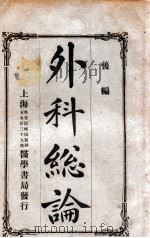 後編
外科總論
上海
醫學書局發行